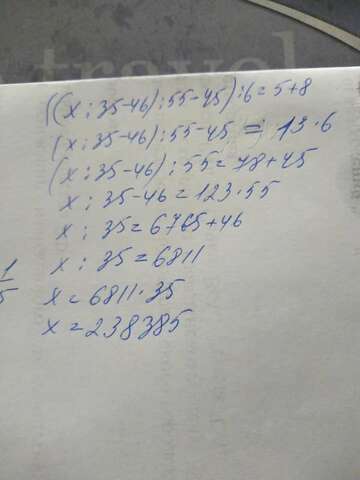 travel
((x : 35-46) : 55-45) : 6 = 5+8
(x : 35-46) : 55-45 = 13·6
(x : 35-46) : 55 = 78+45
x : 35-46 = 123·55
x : 35 = 6765+46
x : 35 = 6811
1
5
x = 6811·35
x = 238385